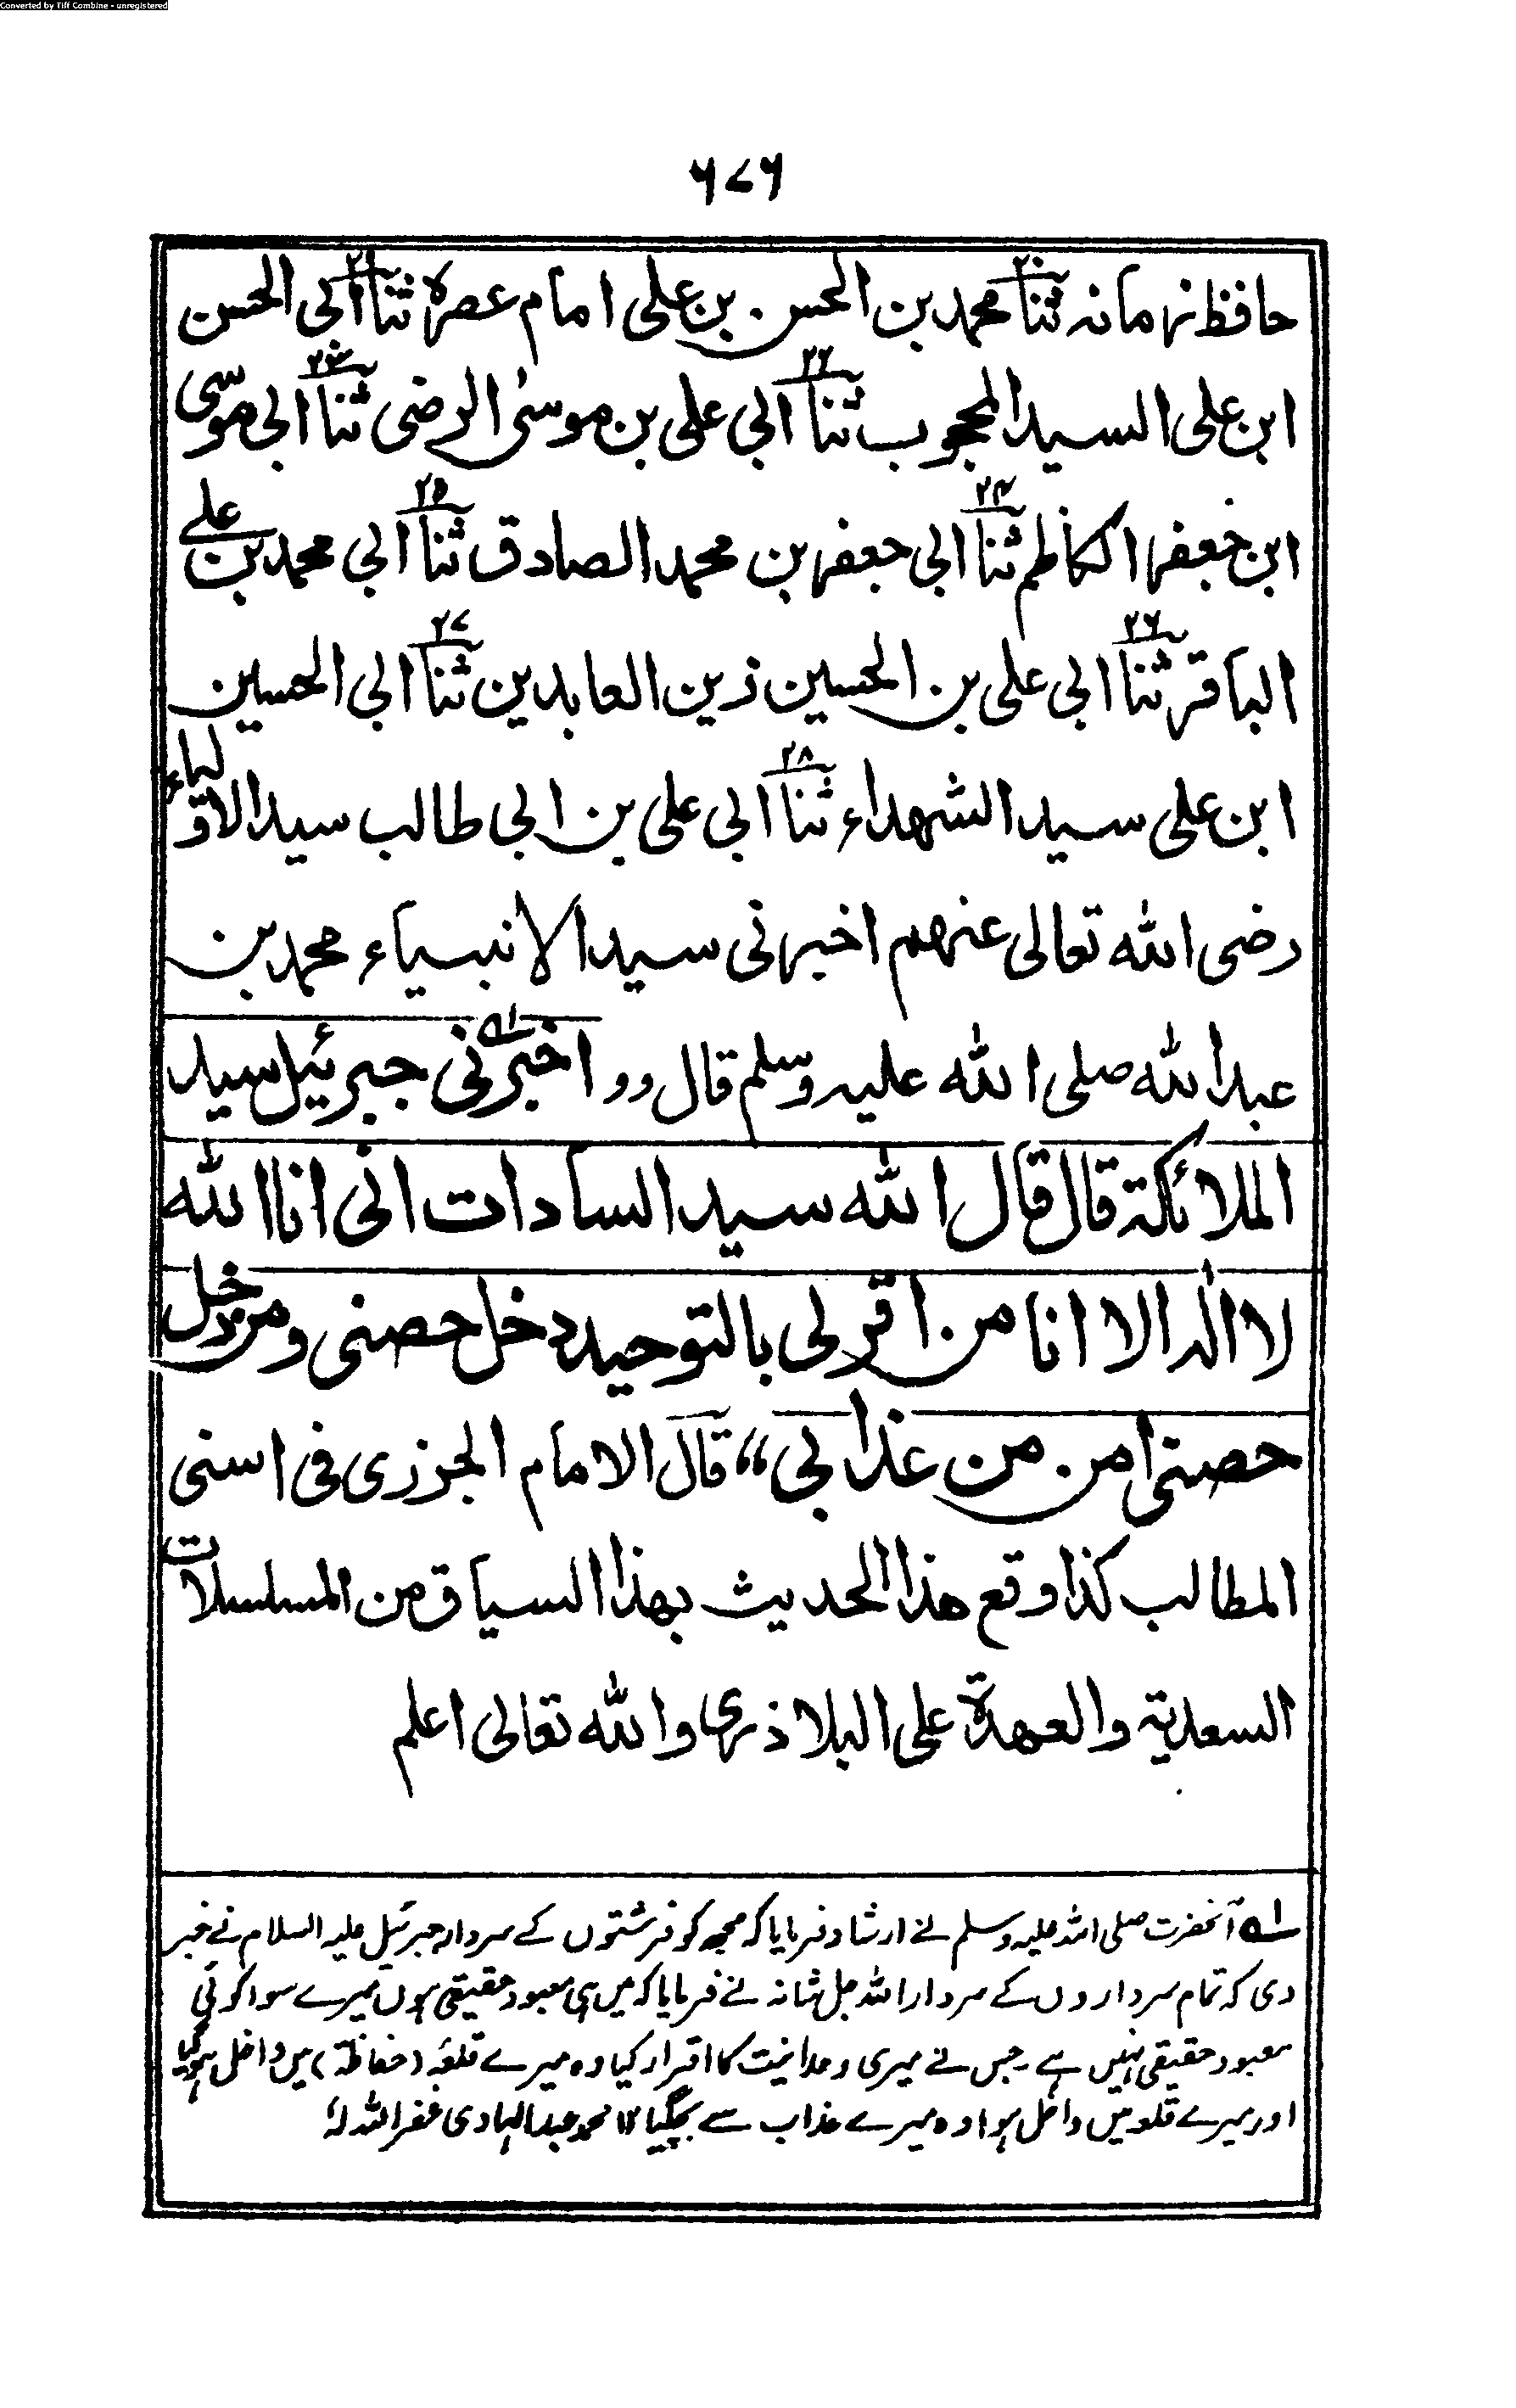 Converted by Tiff Combine - unregistered
۶۷۶
حافظ زمانه ثنا۲۰ محمد بن الحسن بن علی امام عصره ثنا۲۱ ابی الحسن
ابن علی السید المحجوب ثنا۲۲ ابی علی بن موسیٰ الرضی ثنا۲۳ ابی موسی
ابن جعفر الکاظم ثنا۲۴ ابی جعفر بن محمد الصادق ثنا۲۵ ابی محمد بن علے
الباقر ثنا۲۶ ابی علی بن الحسین زین العابدین ثنا۲۷ ابی الحسین
ابن علی سید الشهداء ثنا۲۸ ابی علی بن ابی طالب سید الاولیاء
رضی الله تعالی عنهم اخبرنی سید الانبیاء محمد بن
عبد الله صلی الله علیه وسلم قال ,, اخبرنی۱؎ جبرئیل سید
الملائکة قال قال الله سید السادات انی انا الله
لا الٰه الا انا من اقر لی بالتوحید دخل حصنی ومن دخل
حصنی امن من عذابی“ قال الامام الجزری فی اسنی
المطالب کذا وقع هذا الحدیث بهذا السیاق من المسلسلات
السعدیة والعهدة علی البلاذری والله تعالی اعلم
۱؎ آنحضرت صلی اللہ علیہ وسلم نے ارشاد فرمایا کہ مجھ کو فرشتوں کے سردار جبرئیل علیہ السلام نے خبر
دی کہ تمام سرداروں کے سردار اللہ جل شانہ نے فرمایا کہ میں ہی معبود حقیقی ہوں میرے سوا کوئی
معبود حقیقی نہیں ہے۔ جس نے میری وحدانیت کا اقرار کیا وہ میرے قلعہ (حفاظة) میں داخل ہوگیا
اور میرے قلعہ میں داخل ہوا وہ میرے عذاب سے بچ گیا ۱۲ محمد عبدالہادی غفر اللہ لہٗ